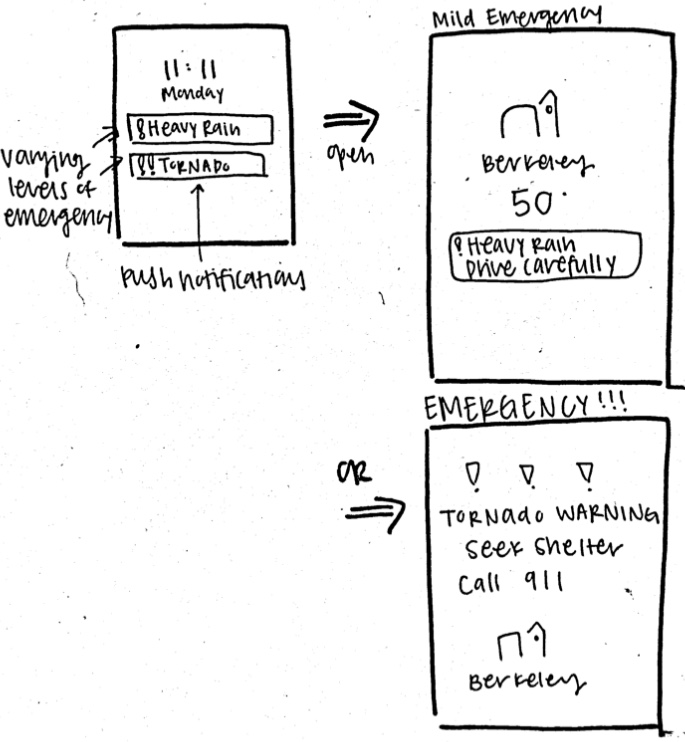 Mild Emergency
11:11
Monday
! Heavy Rain
!! TORNADO
varying
levels of
emergency
push notifications
open
Berkeley
50°
! Heavy Rain
Drive carefully
EMERGENCY!!!
OR
! ! !
TORNado WARNING
Seek Shelter
Call 911
Berkeley